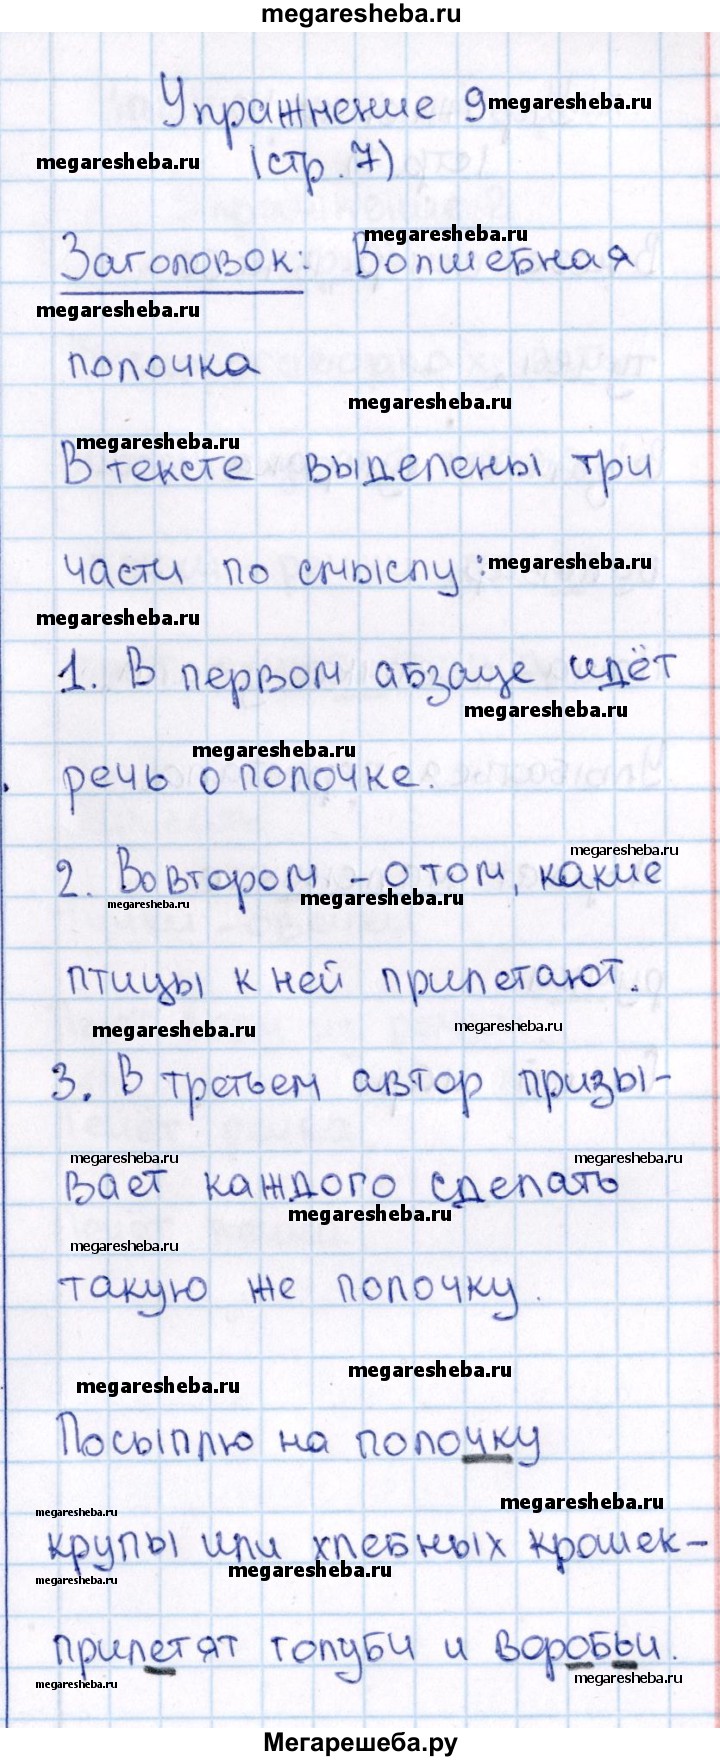 megaresheba.ru
Упражнение 9 megaresheba.ru
megaresheba.ru (стр. 7)
megaresheba.ru
Заголовок: Волшебная
megaresheba.ru
полочка
megaresheba.ru
megaresheba.ru
В тексте выделены три
части по смыслу: megaresheba.ru
megaresheba.ru
1. В первом абзаце идёт
megaresheba.ru
megaresheba.ru
речь о полочке.
megaresheba.ru
2. Во втором – о том, какие
megaresheba.ru megaresheba.ru
птицы к ней прилетают.
megaresheba.ru megaresheba.ru
3. В третьем автор призы-
megaresheba.ru megaresheba.ru
вает каждого сделать
megaresheba.ru
megaresheba.ru
такую же полочку.
megaresheba.ru
megaresheba.ru
Посыплю на полочку
megaresheba.ru
megaresheba.ru
крупы или хлебных крошек –
megaresheba.ru
megaresheba.ru
прилетят голуби и воробьи.
megaresheba.ru megaresheba.ru
Мегарешеба.ру